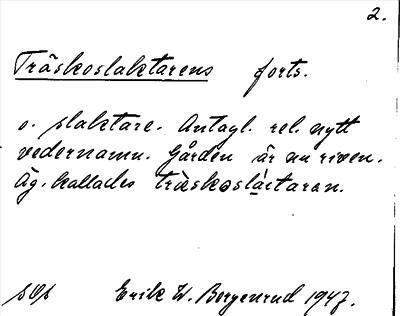 2.
Träskoslaktarens forts.
o. slaktare. Antagl. rel. nytt
vedernamn. Gården är nu riven.
Äg. kallades träskoslaktaran.
Erik W. Bergenrud 1947.